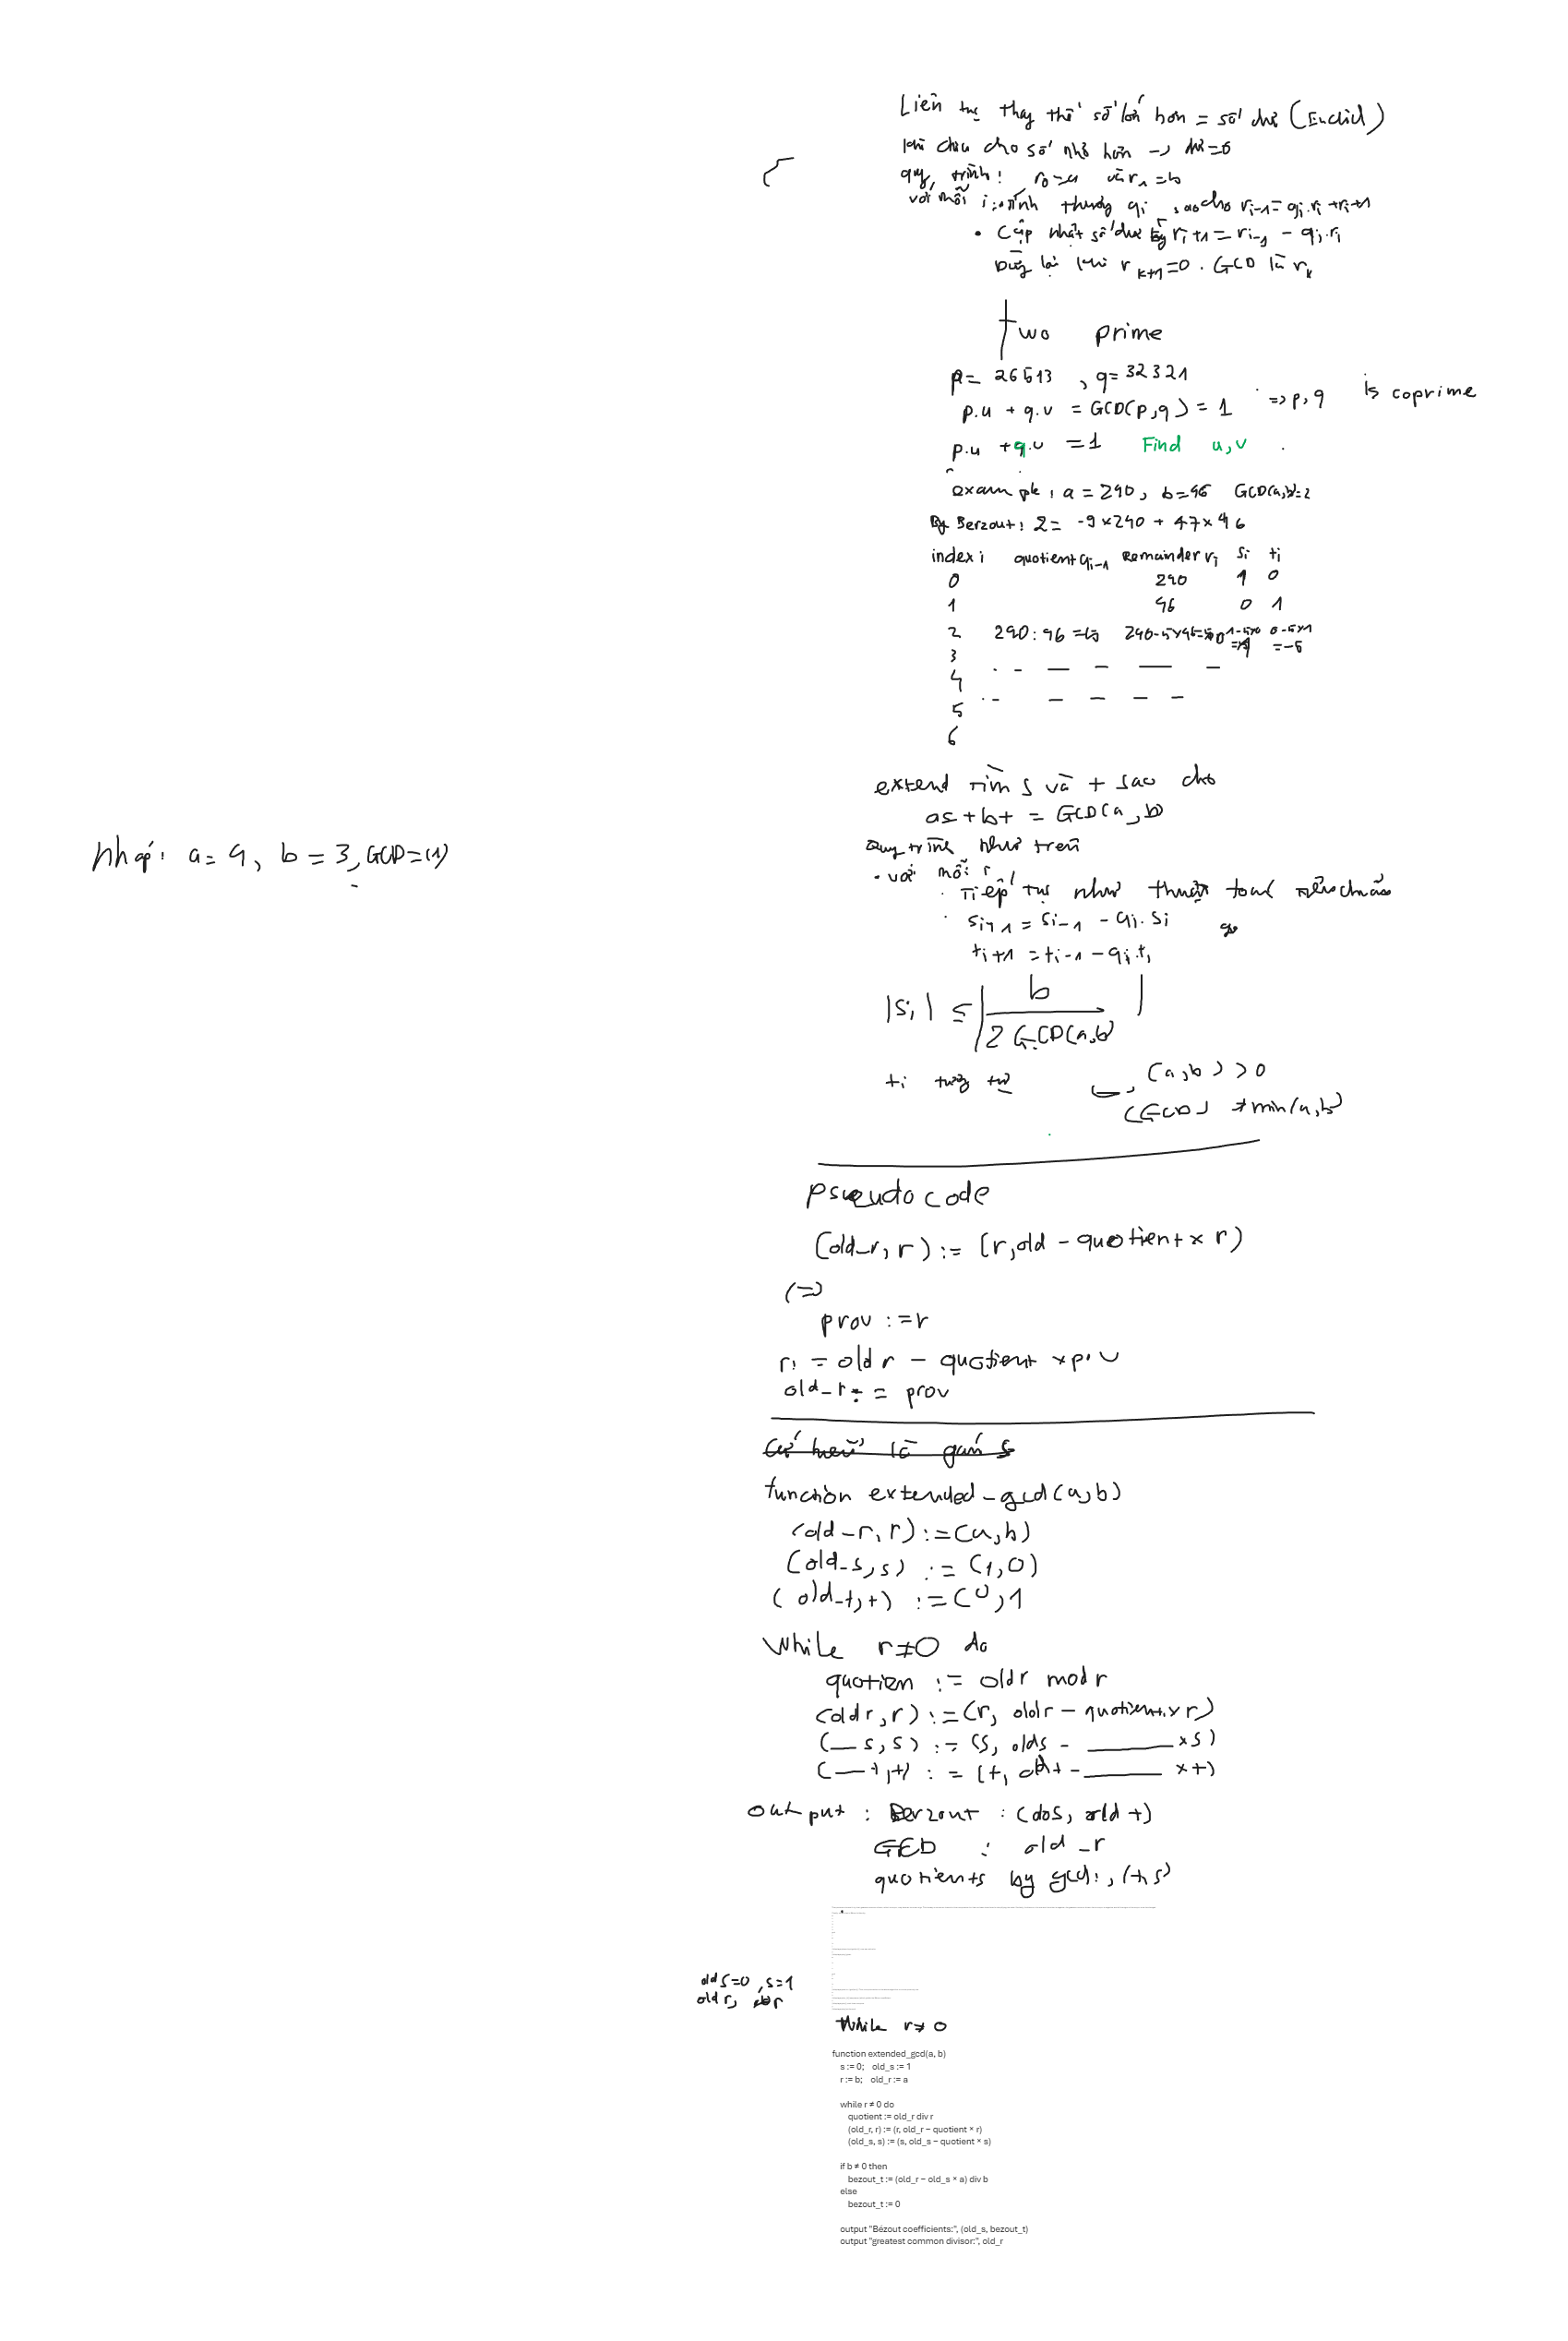 Liên tục thay thế số lớn hơn = số dư (Euclid)
khi chia cho số nhỏ hơn -> dư=0
quy trình: r0=a và r1=b
với mỗi i: tính thương qi sao cho ri-1=qi.ri+ri+1
• Cập nhật số dư bằng ri+1=ri-1 - qi.ri
Dừng lại khi rk+1=0. GCD là rk
two prime
p= 26513 , q=32321
p.u + q.v = GCD(p,q) = 1 => p,q is coprime
p.u + q.v =1 Find u,v .
example: a=240, b=46 GCD(a,b)=2
By Berzout: 2= -9×240 + 47×46
index i quotient qi-1 Remainder ri si ti
0 240 1 0
1 46 0 1
2 240:46=5 240-5×46=10 1-5×0=1 0-5×1=-5
3 . - — - — -
4
5
6
extend tìm s và t sao cho
as+bt = GCD(a,b)
Quy trình như trên
• với mỗi i
. Tiếp tục như thuật toán tiêu chuẩn
. si+1 = si-1 - qi.si
ti+1 = ti-1 - qi.ti
Nháp: a=9, b=3, GCD=(1)
|si| ≤ | b / 2 GCD(a,b) |
ti tương tự (a,b) > 0
(GCD) ≠ min(a,b)
pseudo code
(old_r, r) := (r, old - quotient × r)
(=)
prov := r
r := old r - quotient × prov
old_r := prov
function extended_gcd(a,b)
(old_r, r) := (a,b)
(old_s, s) := (1,0)
(old_t, t) := (0,1
While r≠0 do
quotien := oldr mod r
(oldr, r) := (r, oldr - quotient × r)
(— s, s) := (s, olds - ——— × s)
(— t, t) := (t, oldt - ——— × t)
output : Berzout : (dos, old t)
GCD : old_r
quotients by gcd:, (t, s)
old s=0, s=1
old r, r
While r≠0
function extended_gcd(a, b)
s := 0; old_s := 1
r := b; old_r := a
while r ≠ 0 do
quotient := old_r div r
(old_r, r) := (r, old_r − quotient × r)
(old_s, s) := (s, old_s − quotient × s)
if b ≠ 0 then
bezout_t := (old_r − old_s × a) div b
else
bezout_t := 0
output "Bézout coefficients:", (old_s, bezout_t)
output "greatest common divisor:", old_r